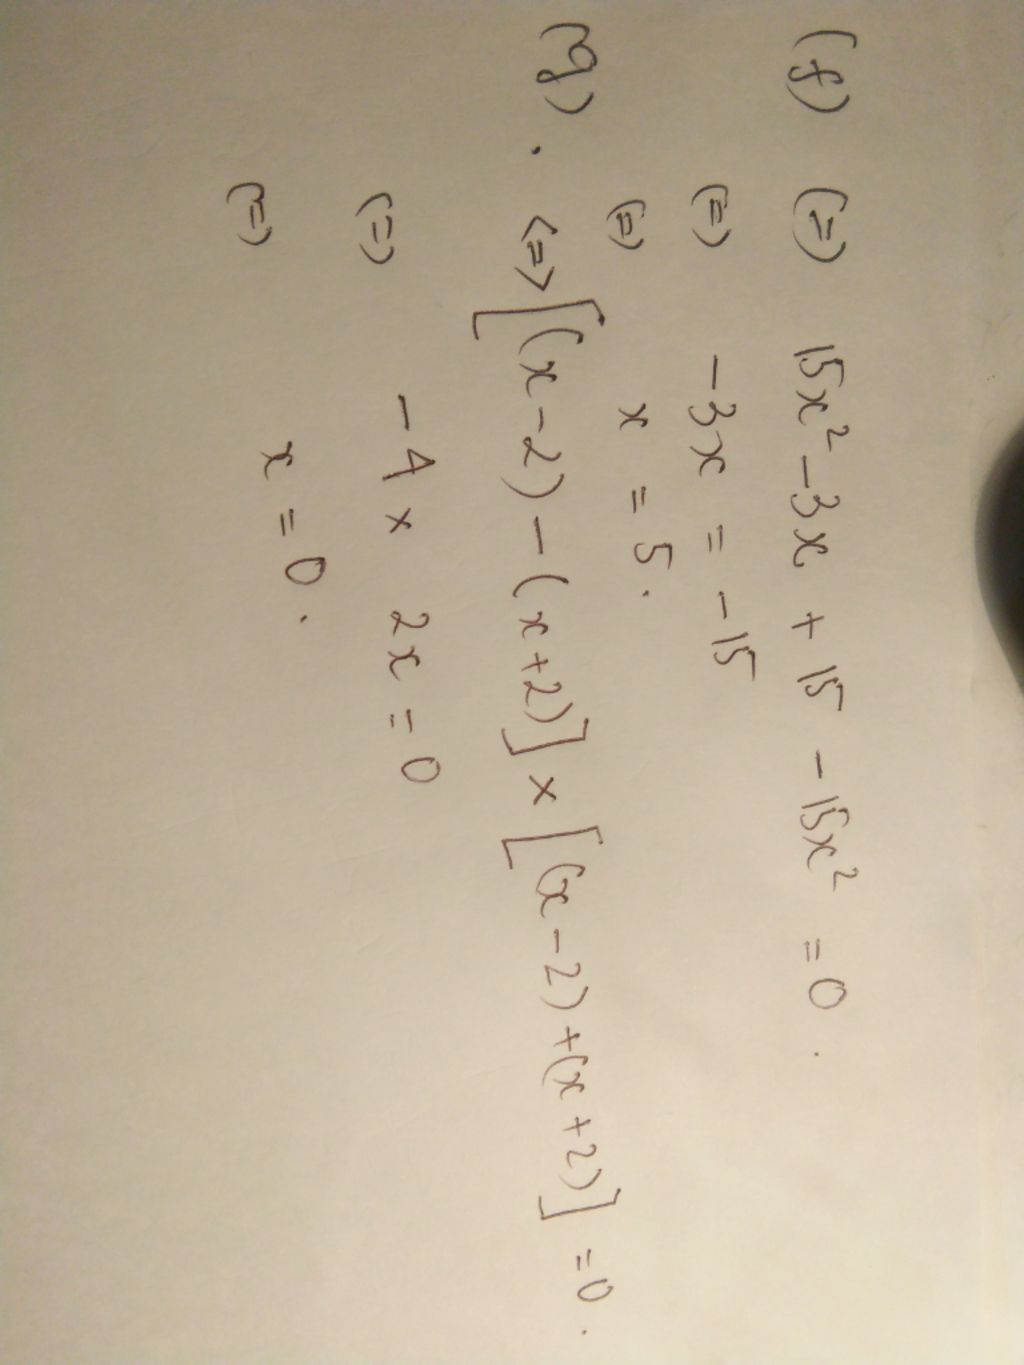 (f) (=) 15x² - 3x + 15 - 15x² = 0.
(=) - 3x = - 15
(=) x = 5.
(g). <=> [(x - 2) - (x + 2)] × [(x - 2) + (x + 2)] = 0.
(=) - 4 × 2x = 0
(=) x = 0.